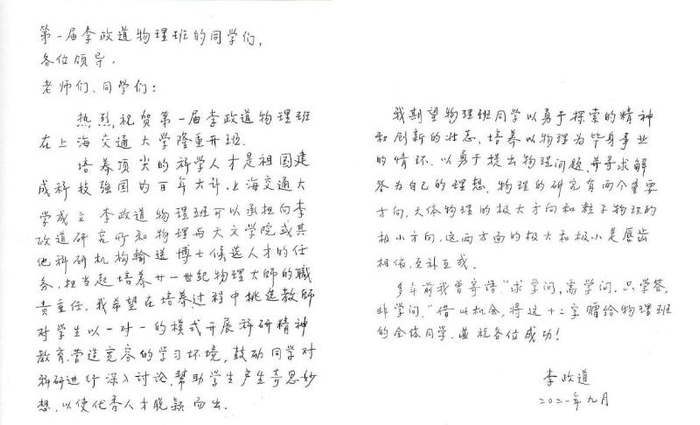 第一届李政道物理班的同学们,
各位领导.
老师们、同学们:
热烈祝贺第一届李政道物理班
在上海交通大学隆重开班.
培养顶尖的科学人才是祖国建
成科技强国的百年大计.上海交通大
学成立李政道物理班可以承担向李
政道研究所和物理与天文学院或其
他科研机构输送博士候选人才的任
务,担当起培养廿一世纪物理大师的职
责重任.我希望在培养过程中挑选教师
对学生以一对一的模式开展科研精神
教育.营造宽容的学习环境,鼓励同学对
科研进行深入讨论,帮助学生产生奇思妙
想,以使优秀人才脱颖而出.
我期望物理班同学以勇于探索的精神
和创新的状态,培养以物理为毕身事业
的情怀.以勇于提出物理问题,并寻求解
答为自己的理想.物理的研究有两个重要
方向.天体物理的极大方向和粒子物理的
极小方向.这两方面的极大和极小是唇齿
相依,互补互成.
多年前我曾寄语"求学问,需学问.只学答,
非学问."借此机会,将这十二字赠给物理班
的全体同学.并祝各位成功!
李政道
二〇二一年九月